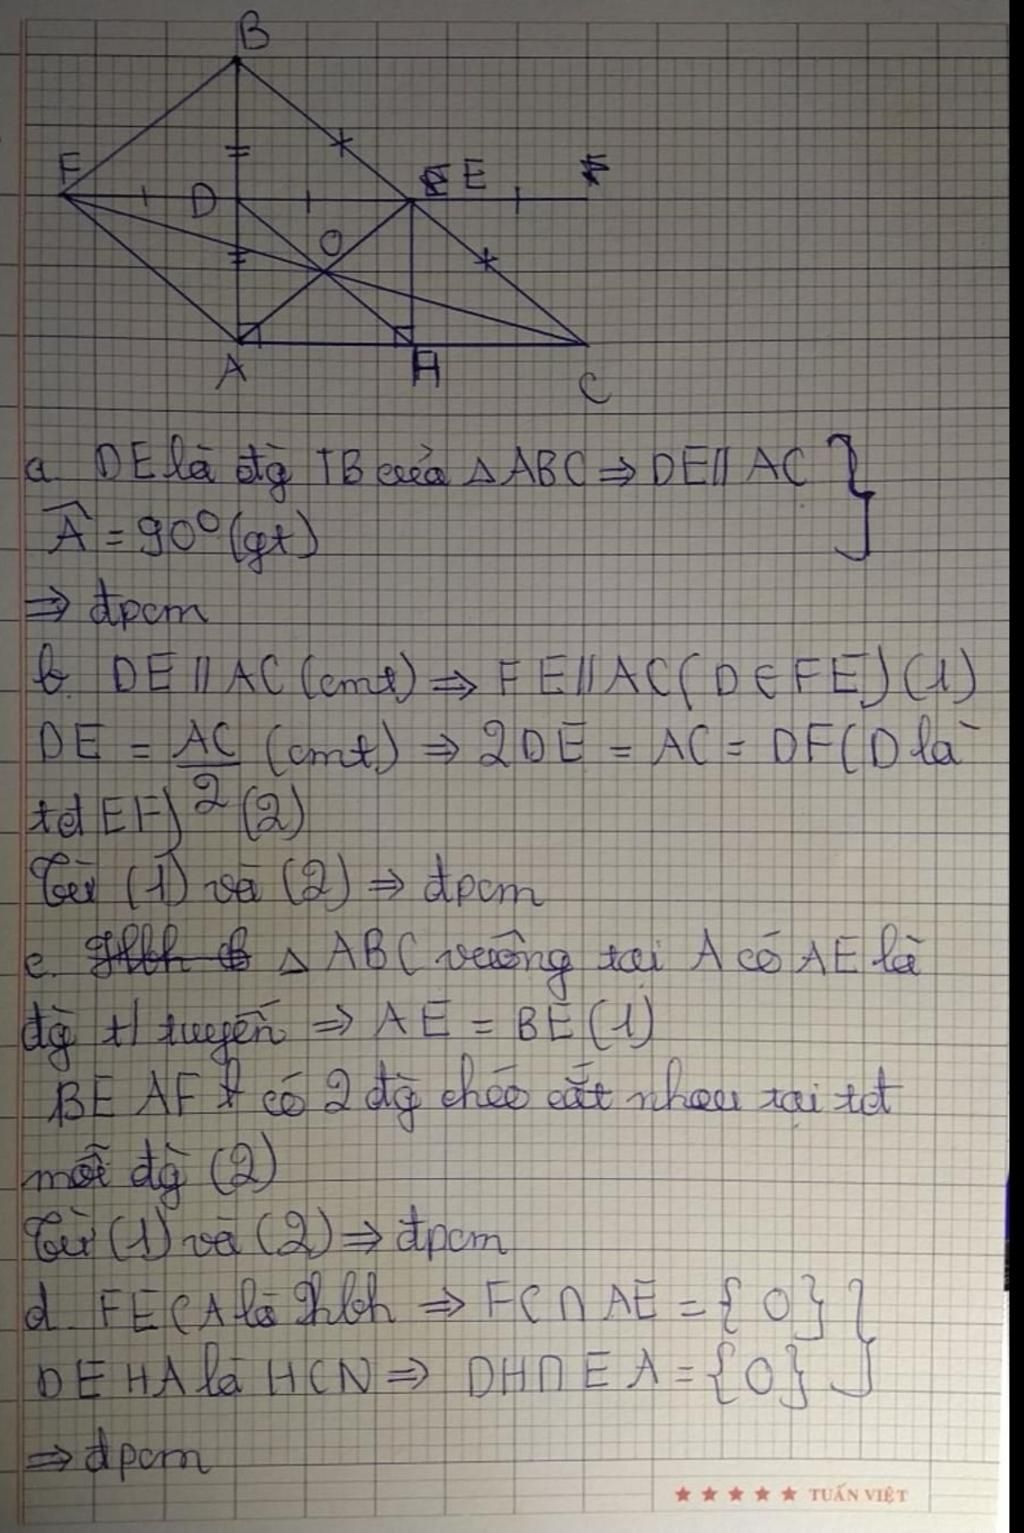 B
F D E
O
A H C
a. DE là đg TB của △ABC ⇒ DE // AC }
Â = 90° (gt)
⇒ đpcm
b. DE // AC (cmt) ⇒ FE // AC (D ∈ FE) (1)
DE = AC/2 (cmt) ⇒ 2DE = AC = DF (D là
tđ EF) (2)
Từ (1) và (2) ⇒ đpcm
c. △ ABC vuông tại A có AE là
đg t/ tuyến ⇒ AE = BE (1)
BE AF có 2 đg chéo cắt nhau tại tđ
mỗi đg (2)
Từ (1) và (2) ⇒ đpcm
d. FECA là hbh ⇒ FC ∩ AE = {O} }
DEHA là HCN ⇒ DH ∩ EA = {O}
⇒ đpcm
★ ★ ★ ★ ★ TUẤN VIỆT